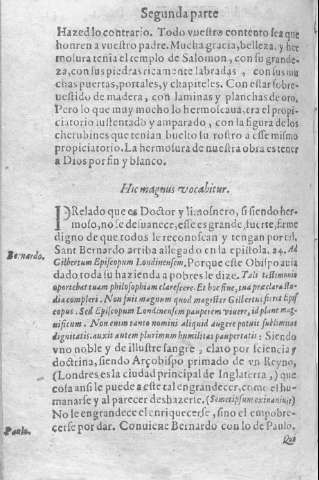 Segunda parte
Hazed lo contrario. Todo vuestro contento sea que
honren a vuestro padre. Mucha gracia, belleza, y her
mosura tenia el templo de Salomon, con su grande-
za, con sus piedras ricamente labradas, con sus mu
chas puertas, portales, y chapiteles. Con estar sobre-
uestido de madera, con laminas y planchas de oro.
Pero lo que muy mucho lo hermoseaua, era el propi-
ciatorio sustentado y amparado, con la figura de los
cherubines que tenian buelto su rostro a esse mismo
propiciatorio. La hermosura de nuestra obra es tener
a Dios por fin y blanco.
Hic magnus vocabitur.
PRelado que es Doctor y limosnero, si siendo her-
moso, no se desuanece, esse es grande, fuerte, firme
digno de que todos le reconoscan y tengan por tal.
Bernardo.
Sant Bernardo arriba allegado en la epistola. 24. Ad
Gilbertum Episcopum Londinensem, Porque este Obispo auia
dado toda su hazienda a pobres le dize. Tali testimonio
oportebat tuam philosophiam clarescere. Et hoc fine, tua præclara stu-
dia compleri. Non fuit magnum quod magister Gilbertus fieret Epis
copus. Sed Episcopum Londinensem pauperem viuere, id plane mag-
nificum. Non enim tanto nomini aliquid augere potuit sublimitas
dignitatis. auxit autem plurimum humilitas paupertatis: Siendo
vno noble y de illustre sangre, claro por sciencia y
doctrina, siendo Arçobispo primado de vn Reyno,
(Londres es la ciudad principal de Inglaterra,) que
cosa ansi le puede a este tal engrandecer, como el hu-
manarse y al parecer deshazerle. (Semetipsum exinaniuit)
No le engrandece el enriquecerse, sino el empobre-
Paulo.
cerse por dar. Conuiene Bernardo con lo de Paulo.
Que